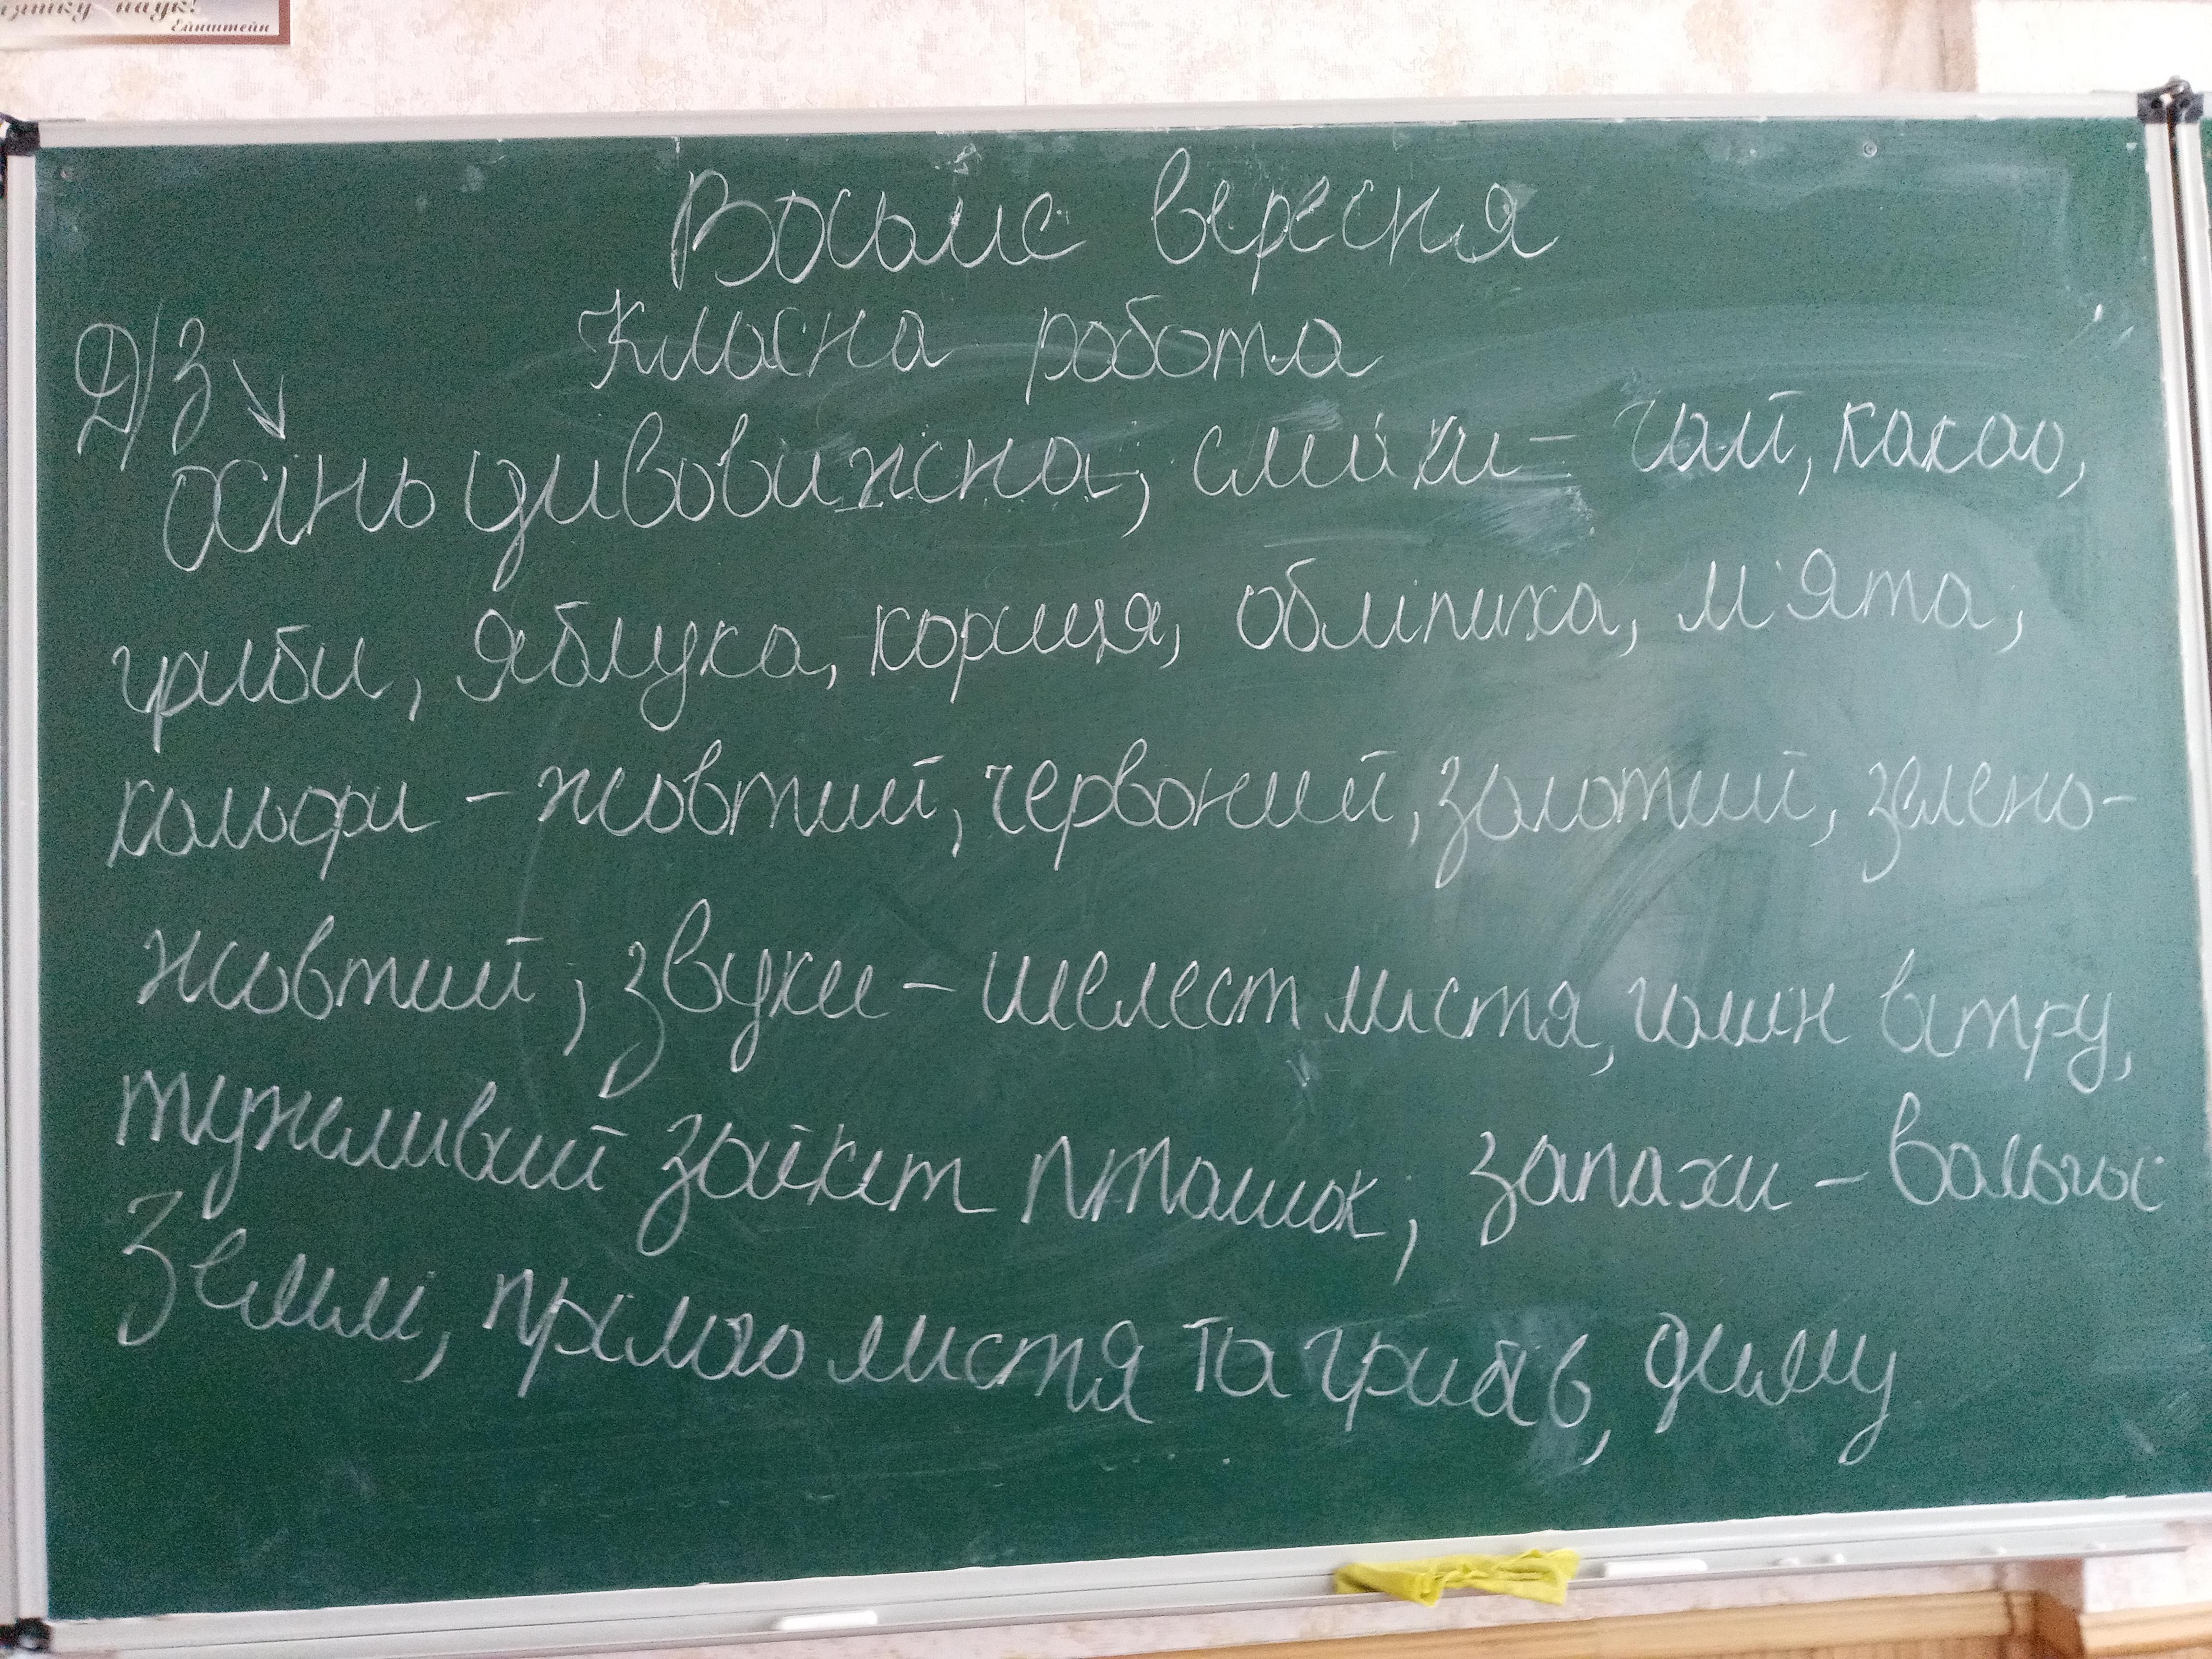 наук!
Ейнштейн
Восьме вересня
Класна робота
Д/З
осінь дивовижна; смаки – чай, какао,
гриби, яблука, кориця, обліпиха, м'ята;
кольори – жовтий, червоний, золотий, зелено-
жовтий; звуки – шелест листя, гомін вітру,
тужливий політ пташок; запахи – вологої
землі, прілого листя та грибів, диму